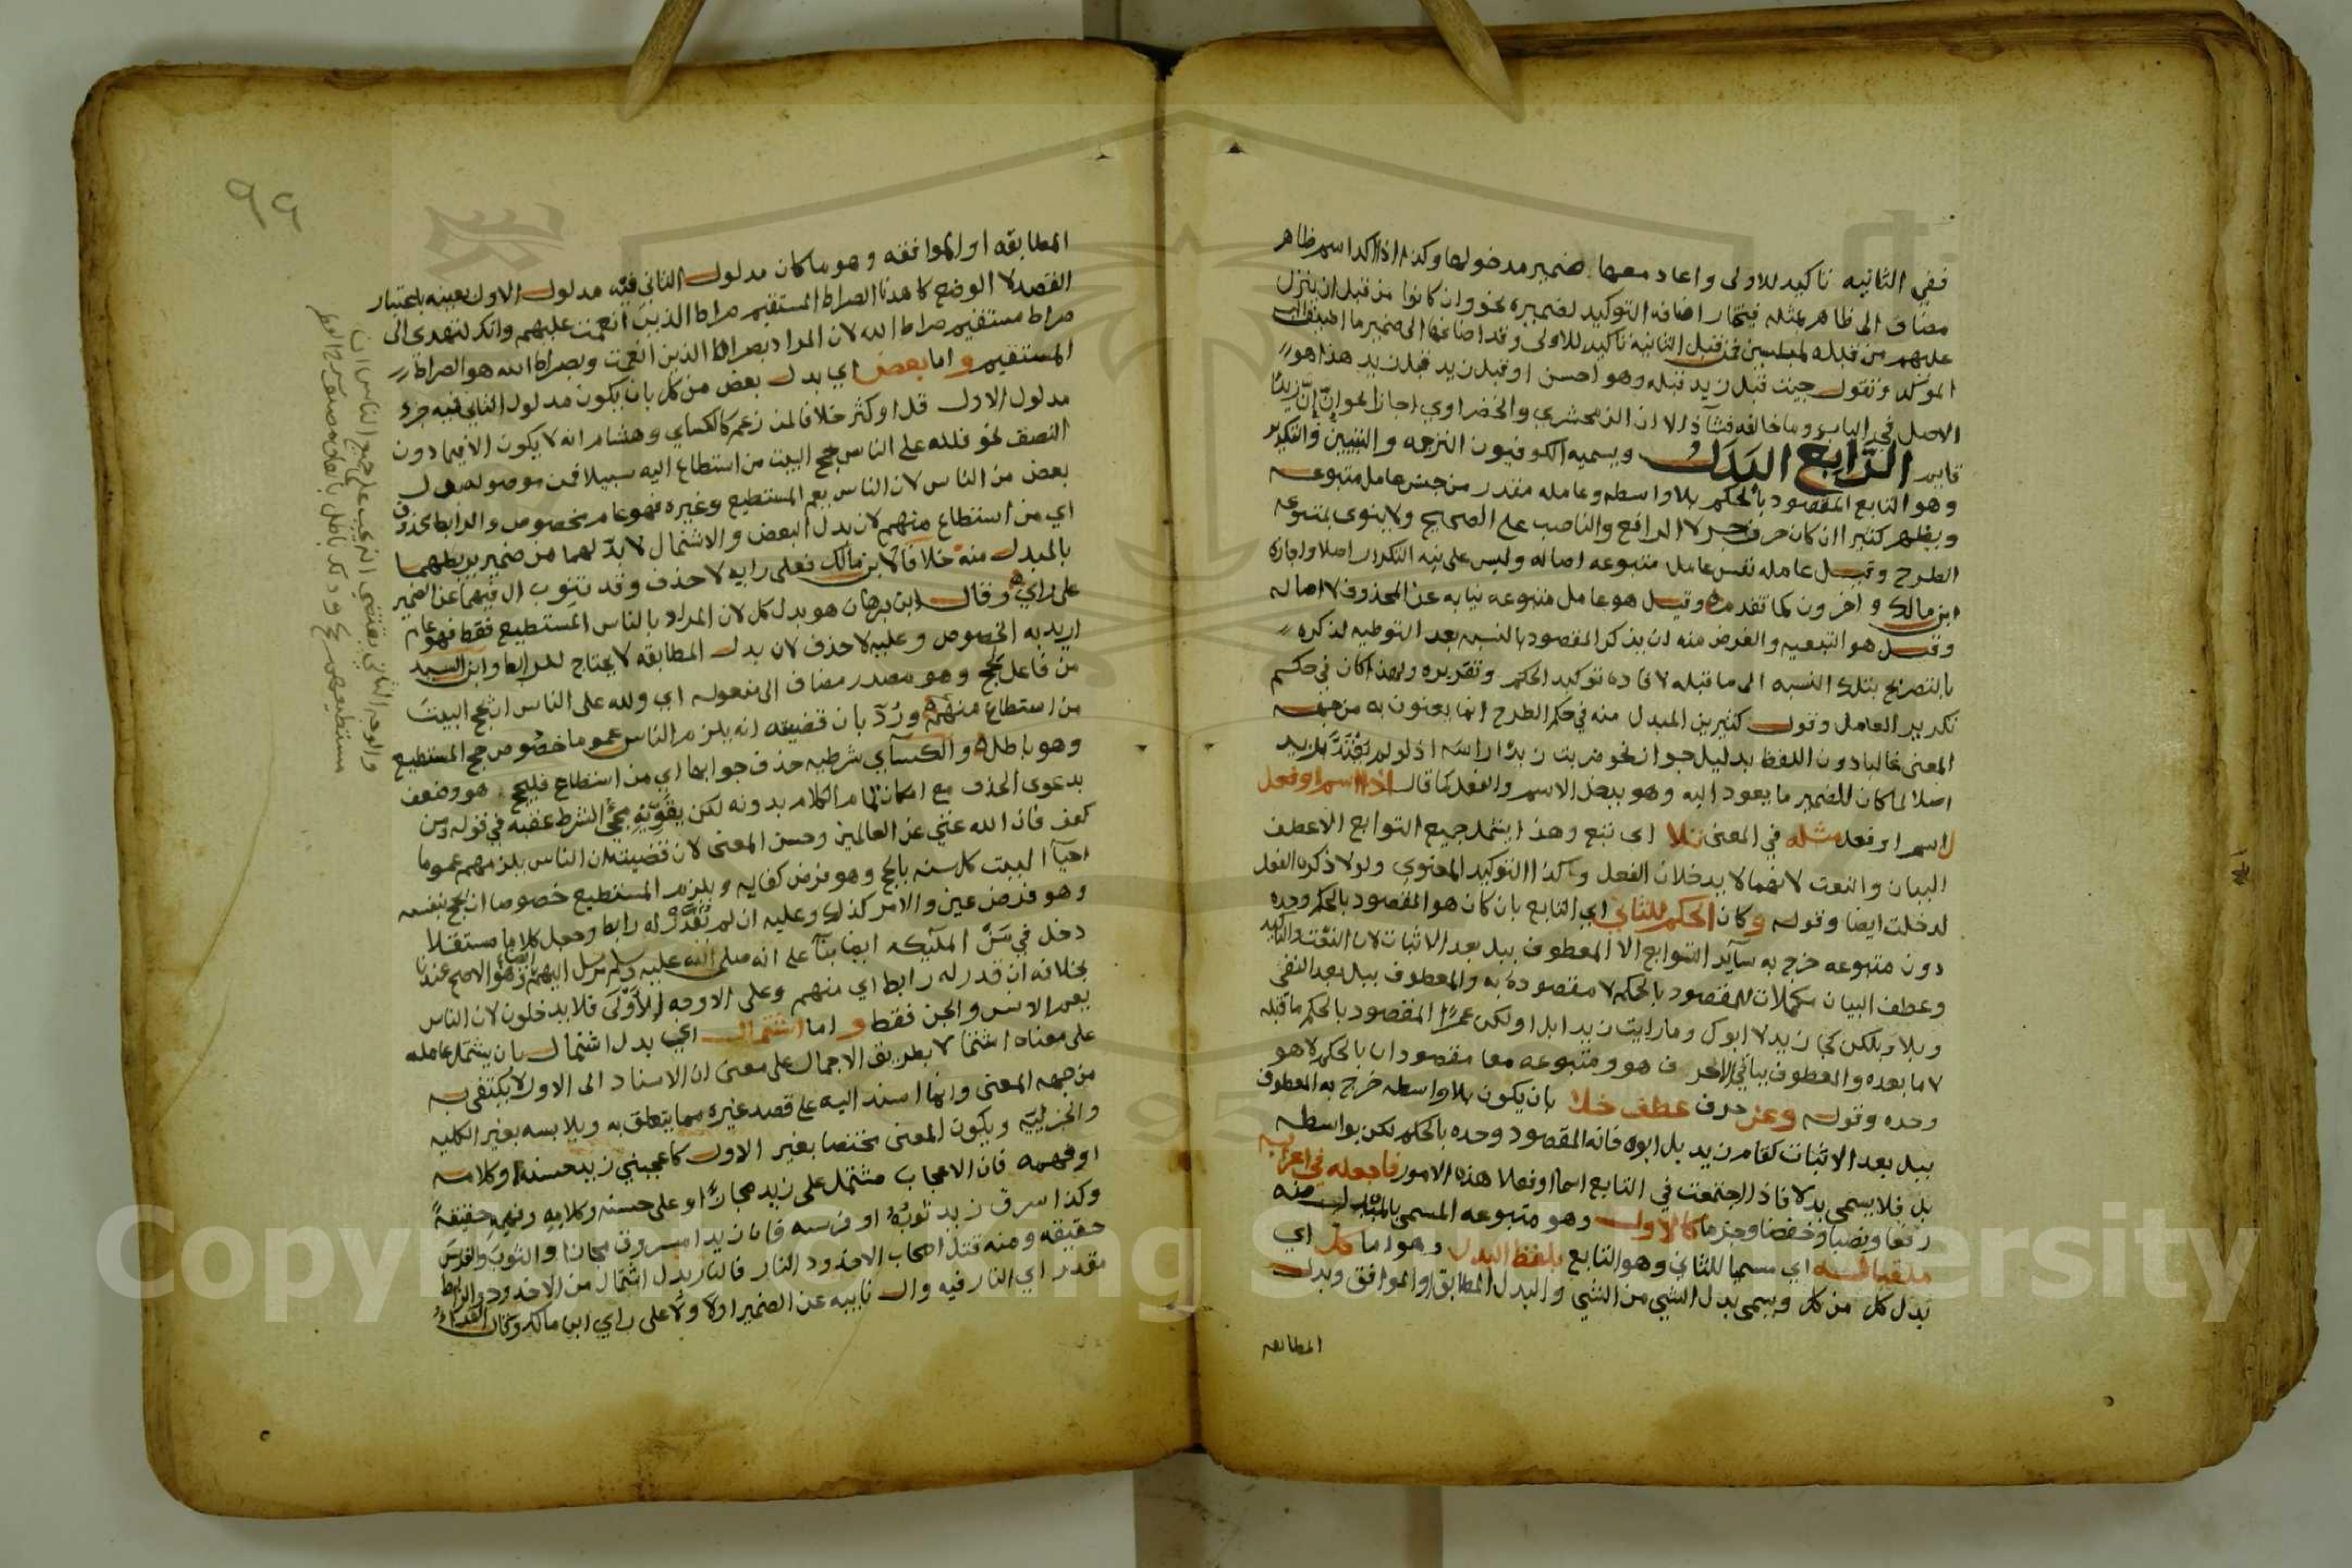 ففي الثانيه تاكيد للاولى واعاد معها ضمير مدخولها وكذا اذا اكد اسم ظاهر
مضاف الى ظاهر بمثله فيختار اضافه التوكيد لضميره نحو وان كانوا من قبل ان ينزل
عليهم من قبله لمبلسين فمن قبل الثانية تاكيد للاولى وقد اضافها الى ضمير ما اضيف اليه
الموكد وتقول جيت قبل زيد قبله وهو احسن او قبل زيد قبل زيد هذا هو
الاصل في الباب وما خالفه فشاذ الا ان الزمخشري والخضراوي اجازا نحو ان ان زيدا
قايم الرابع البدل ويسميه الكوفيون الترجمه والتبيين والتكرير
وهو التابع المقصود بالحكم بلا واسطه وعامله مقدر من جنس عامل متبوعه
ويظهر كثيرا ان كان حرف جر لا الرافع والناصب على الصحيح ولا ينوى بمتبوعه
الطرح وقيل عامله نفس عامل متبوعه اصاله وليس على نيه التكرار اصلا واجازه
ابن مالك واخرون كما تقدم وقيل هو عامل متبوعه نيابه عن المحذوف لا اصاله
وقيل هو التبعيه والغرض منه ان يذكر المقصود بالنسبه بعد التوطيه لذكره
بالتصريح بتلك النسبه الى ما قبله لافاده توكيد الحكم وتقريره ولهذا كان في حكم
تكرير العامل وقول كثيرين المبدل منه في حكم الطرح انما يعنون به من جهه
المعنى غالبا دون اللفظ بدليل جواز نحو ضربت زيدا راسه اذ لو لم يعتد بزيد
اصلا لما كان للضمير ما يعود اليه وهو يدخل الاسم والفعل كما قال اذا اسم او فعل
لاسم او فعل مثله في المعنى تلا اى تبع وهذا يشمل جميع التوابع الا عطف
البيان والنعت لانهما لا يدخلان الفعل وكذا التوكيد المعنوي ولولا ذكره الفعل
لدخلت ايضا وقوله وكان الحكم للثاني اي التابع بان كان هو المقصود بالحكم وحده
دون متبوعه خرج به ساير التوابع الا المعطوف ببل بعد الاثبات لان النعت والتاكيد
وعطف البيان مكملات للمقصود بالحكم لا مقصوده به والمعطوف ببل بعد النفي
وبلا وبلكن كجا زيد لا ابوك وما رايت زيدا بل او لكن عمرا المقصود بالحكم ما قبله
لا ما بعده والمعطوف بباقي الاحرف هو ومتبوعه معا مقصودان بالحكم لا هو
وحده وقوله وعن حرف عطف خلا بان يكون بلا واسطه خرج به المعطوف
ببل بعد الاثبات كقام زيد بل ابوه فانه المقصود وحده بالحكم لكن بواسطه
بل فلا يسمى بدلا فاذا اجتمعت في التابع اسما او فعلا هذه الامور فاجعله في اعرابه
رفعا ونصبا وخفضا وجزما كالاول وهو متبوعه المسمى بالمبدل منه
ملقبا له اي مسميا للثاني وهو التابع بلفظ البدل وهو اما كل اي
بدل كل من كل ويسمى بدل الشي من الشي والبدل المطابق او الموافق وبدل
المطابقه
٩٩
المطابقه او الموافقه وهو ما كان مدلول الثاني فيه مدلول الاول بعينه باعتبار
القصد لا الوضع كاهدنا الصراط المستقيم صراط الذين انعمت عليهم وانك لتهدى الى
صراط مستقيم صراط الله لان المراد بصراط الذين انعمت وبصراط الله هو الصراط
المستقيم واما بعض اي بدل بعض من كل بان يكون مدلول الثاني فيه جزء
مدلول الاول قل او كثر خلافا لمن زعم كالكساي وهشام انه لا يكون الا فيما دون
النصف نحو فلله على الناس حج البيت من استطاع اليه سبيلا فمن موصوله بدل
بعض من الناس لان الناس يعم المستطيع وغيره فهو عام مخصوص والرابط محذوف
اي من استطاع منهم لان بدل البعض والاشتمال لا بد لهما من ضمير يربطهما
بالمبدل منه خلافا لابن مالك فعلى رايه لا حذف وقد تنوب ال فيهما عن الضمير
على راي وقال ابن برهان هو بدل كل لان المراد بالناس المستطيع فقط فهو عام
اريد به الخصوص وعليه لا حذف لان بدل المطابقه لا يحتاج لرابط وابن السيد
من فاعل حج وهو مصدر مضاف الى مفعوله اي ولله على الناس ان يحج البيت
من استطاع منهم ورد بان قضيته انه يلزم الناس عموما خصوص حج المستطيع
وهو باطل والكساي شرطيه حذف جوابها اي من استطاع فليحج هو وضعف
بدعوى الحذف مع امكان تمام الكلام بدونه لكن يقويه مجئ الشرط عقبه في قوله ومن
كفر فان الله غني عن العالمين وحسن المعنى لان قضيته ان الناس يلزمهم عموما
احيا البيت كل سنه بالحج وهو فرض كفايه ويلزم المستطيع خصوصا ان يحج بنفسه
وهو فرض عين والامر كذلك وعليه ان لم نقدر له رابط وجعل كلاما مستقلا
دخل في من الملئكه ايضا بنا على انه صلى الله عليه وسلم مرسل اليهم ايضا وهو الاصح عندنا
بخلافه ان قدر له رابط اي منهم وعلى الاوجه الاولى فلا يدخلون لان الناس
يعم الانس والجن فقط واما اشتمال اي بدل اشتمال بان يشتمل عامله
على معناه اشتمالا بطريق الاجمال على معنى ان الاسناد الى الاول لا يكتفى به
من جهه المعنى وانما اسند اليه على قصد غيره مما يتعلق به ويلابسه بغير الكليه
والجزئيه ويكون المعنى مختصا بغير الاول كاعجبني زيد حسنه او كلامه
او فهمه فان الاعجاب مشتمل على زيد مجازا وعلى حسنه وكلامه وفهمه حقيقة
وكذا سرق زيد ثوبه او فرسه فان زيدا مسروق مجازا والثوب والفرس
حقيقه ومنه قتل اصحاب الاخدود النار فالنار بدل اشتمال من الاخدود والرابط
مقدر اي النار فيه وال نايبه عن الضمير اولا ولا على راي ابن مالك وقال الفراء
والوجه الثاني يقتضي انه يجب على جميع الناس ان
مستطيعهم يحج وذلك باطل باتفاق
Copyright © King Saud University